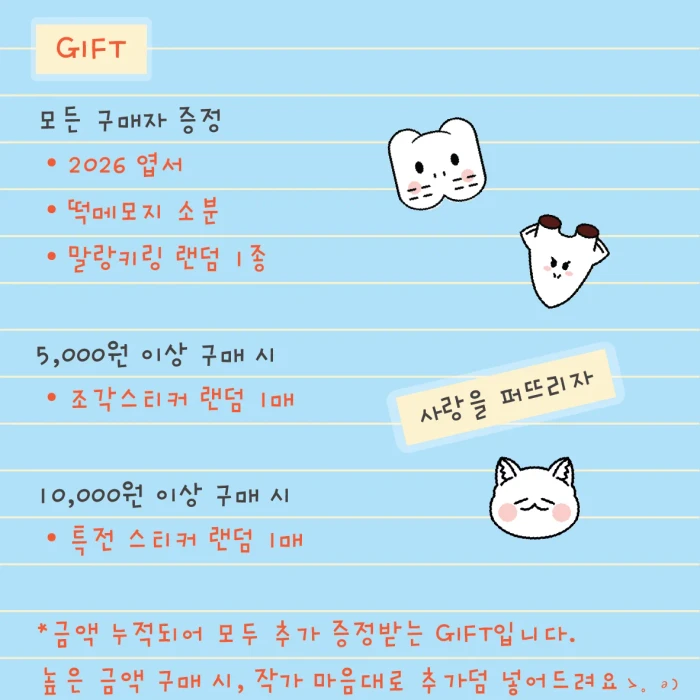 GIFT
모든 구매자 증정
• 2026 엽서
• 떡메모지 소분
• 말랑키링 랜덤 1종
5,000원 이상 구매 시
• 조각스티커 랜덤 1매
사랑을 퍼뜨리자
10,000원 이상 구매 시
• 특전 스티커 랜덤 1매
*금액 누적되어 모두 추가 증정받는 GIFT입니다.
높은 금액 구매 시, 작가 마음대로 추가덤 넣어드려요